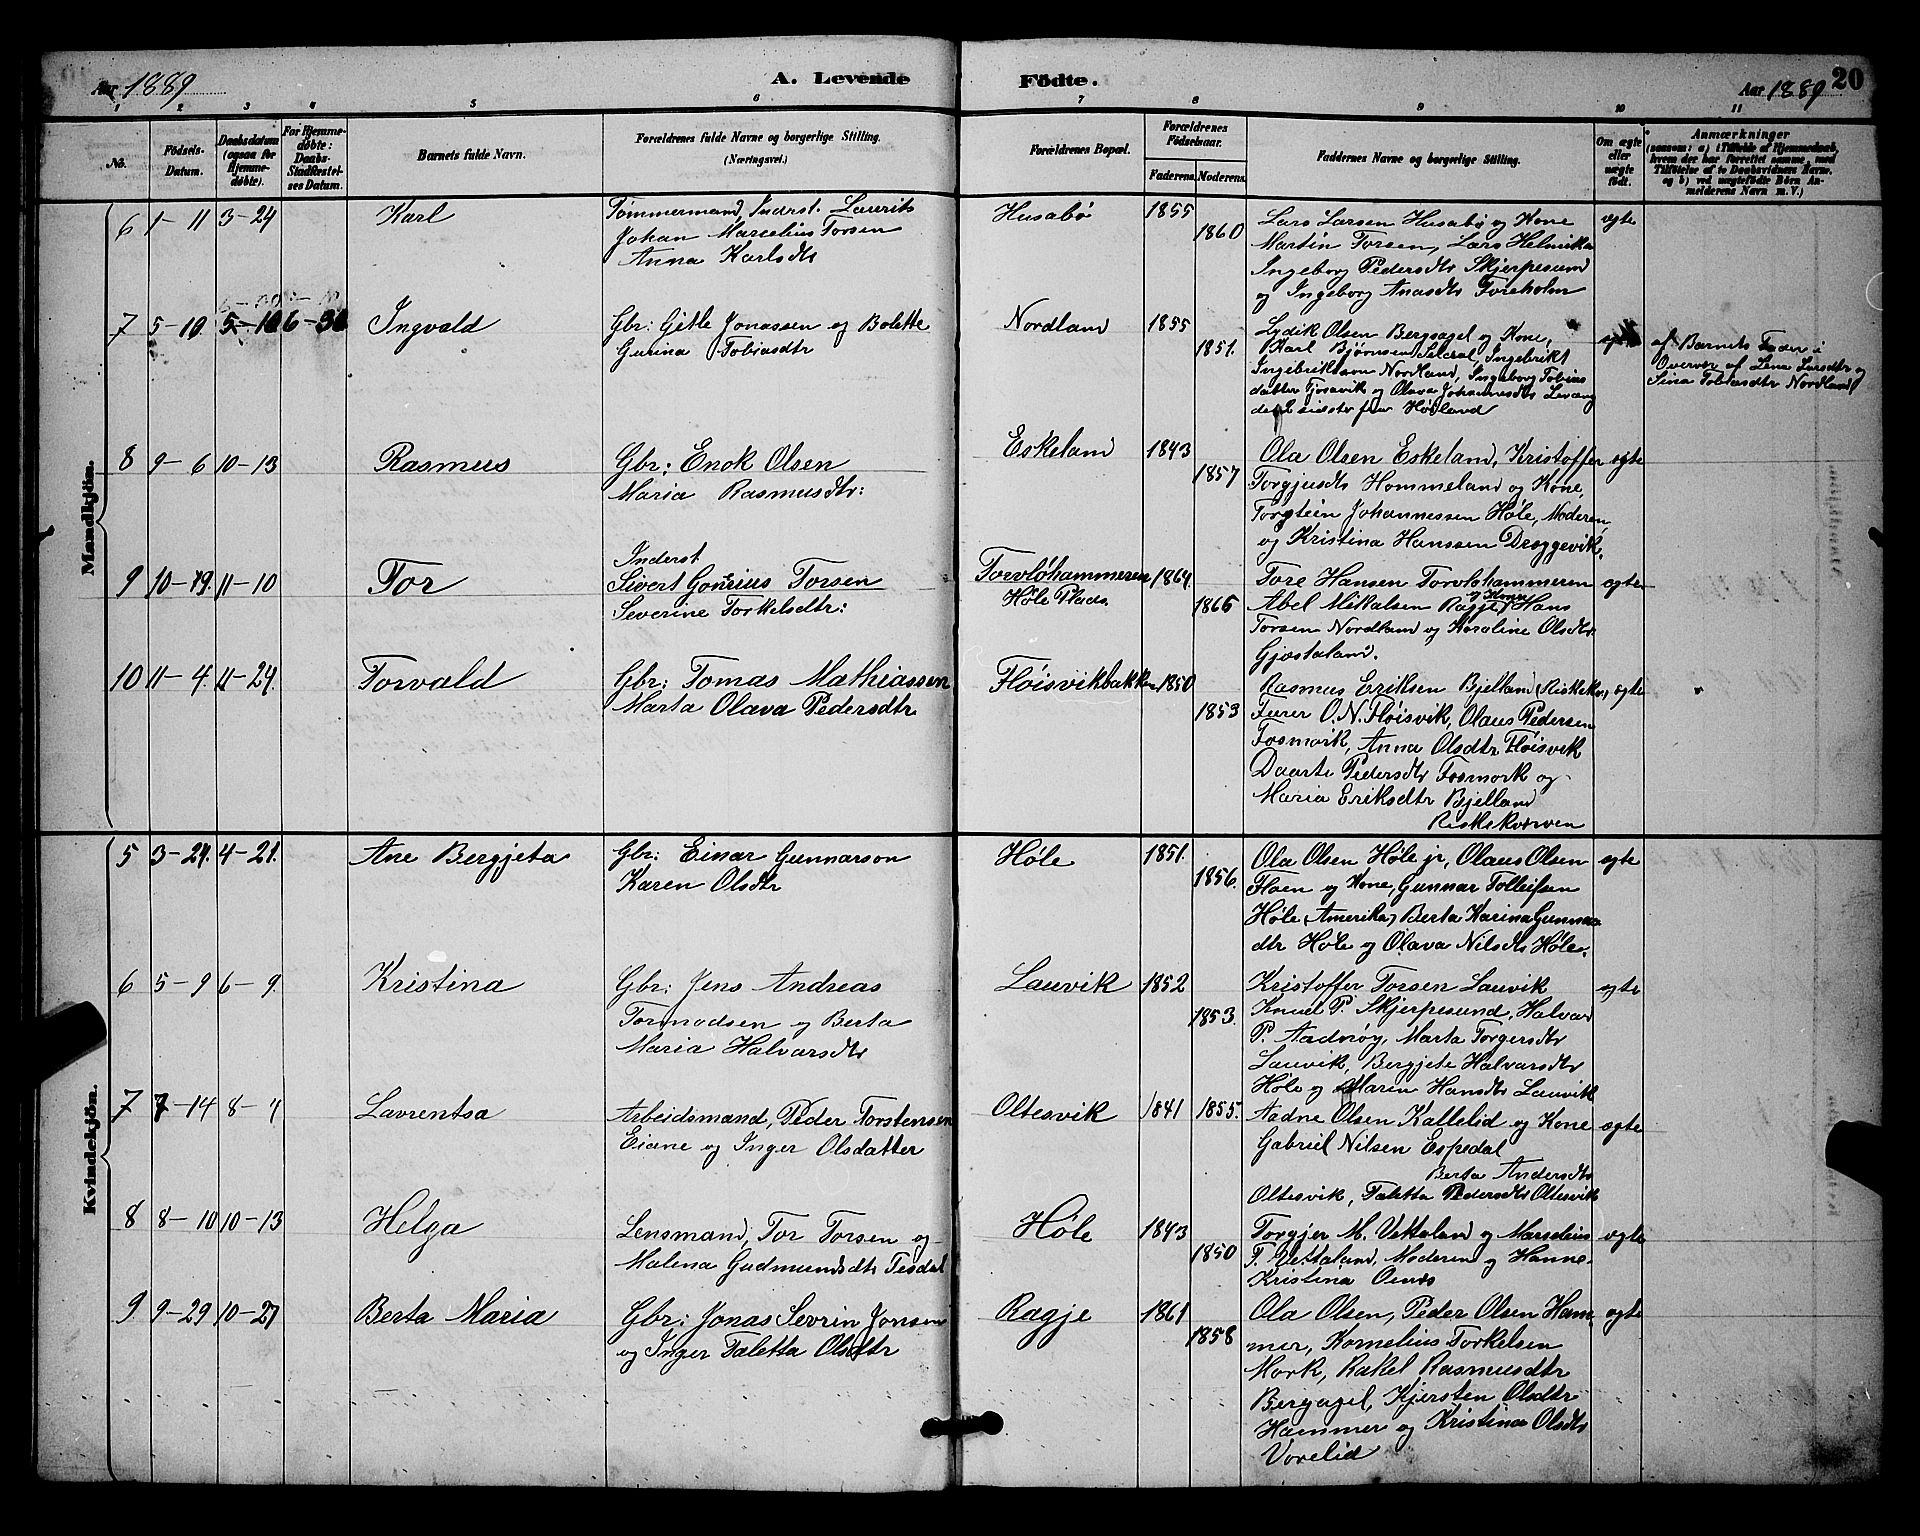 Aar 1889
A. Levende
Födte.
Aar 1889
20
1 2 3 4 5 6 7 8 9 10 11
No.
Födsels-
Datum.
Daabsdatum
(ogsaa for
Hjemme-
døbte).
For Hjemme-
døbte:
Daabs-
Stadfæstel-
ses Datum.
Barnets fulde Navn.
Forældrenes fulde Navne og borgerlige Stilling.
(Næringsvei.)
Forældrenes Bopæl.
Forældrenes
Födselsaar.
Faderens. Moderens.
Faddernes Navne og borgerlige Stilling.
Om ægte
eller
uægte
født.
Anmærkninger
(saasom: a) i Tilfælde af Hjemmedaab,
hvem der har forrettet samme, med
Tilføielse af to Daabsvidners Navne,
og b) ved uægtefødte Børn An-
melderens Navn m. V.)
Mandkjön.
6 1-11 3-24 Karl
Tømmermand, Inderst. Laurits
Johan Marselius Torsen
Anna Karlsdtr
Husabø 1855
1860
Lars Larsen Husabø og Kone
Martin Torsen, Lars Helmika
Ingeborg Pedersdtr Skjerpesund
og Ingeborg Anasdtr Foreholm
egte
7 5-10 5-10 6-30 Ingvald
Gbr: Gitle Jonassen og Bolette
Gurina Tobiasdtr
Nordland 1855
1851.
Lydik Olsen Bergsagel og Kone,
Karl Bjørnsen Seldal, Ingebrikt
Ingebriktsen Nordland, Ingeborg Tobias
datter Tjosavik og Olava Johannesdtr Levang
de 2 sidste fra Høland
af Barnets Fader i
Overvær af Lena Larsdtr og
Sina Tobiasdtr Nordland
8 9-6 10-13 Rasmus
Gbr: Enok Olsen
Maria Rasmusdtr:
Eskeland 1843
1857
Ola Olsen Eskeland, Kristoffer
Torgjusdtr Hommeland og Kone,
Torgtein Johannessen Høle, Moderen,
og Kristina Hanssen Dreggevik.
egte
9 10-19. 11-10 Tor
Inderst
Sivert Gonsius Torsen
Severine Torkelsdtr:
Torvløhammeren
Høle Plads 1864
1866
Tore Hansen Torvløhammeren
Abel Mikalsen Ragje og Kone Hans
Torsen Nordland og Karoline Olsdtr
Gjøstaland.
egte
10 11-4. 11-24. Torvald
Gbr: Tomas Mathiassen
Marta Olava Pedersdtr
Fløisvikbakken 1850
1853
Rasmus Eriksen Bjelland (Riskekv.)
Furer O. N. Fløisvik, Olaus Pedersen
Fosmark, Anna Olsdtr Fløisvik
Daarte Pedersdtr Fosmork og
Maria Eriksdtr Bjelland
Riskekverven
egte
Kvindekjön.
5 3-24. 4-21. Ane Bergjeta
Gbr: Einar Gunnarson
Karen Olsdtr
Høle 1851.
1856.
Ola Olsen Høle jr, Olaus Olsen
Floen og Kone, Gunnar Tolleifsen
Høle (Amerika) Berta Karina Gunnar
dtr Høle og Olava Nilsdtr Høle.
egte
6 5-9 6-9. Kristina
Gbr: Jens Andreas
Tormodsen og Berta
Maria Halvarsdtr
Lauvik 1852
1853.
Kristoffer Torsen Lauvik
Knud P. Skjerpesund, Halvar
P. Aadnøy, Marta Torgersdtr
Lauvik, Bergjete Halvarsdtr
Høle og Maren Hansdtr Lauvik
egte
7 7-14 8-4 Lavrentsa
Arbeidsmand, Peder Torstensen
Eiane og Inger Olsdatter
Oltesvik 1841 1855.
Aadne Olsen Kallelid og Kone
Gabriel Nilsen Espedal
Berta Andersdtr
Oltesvik, Taletta Pedersdtr Oltesvik
egte
8 8-10 10-13 Helga
Lensmand, Tor Torsen og
Malena Gudmundsdtr Tesdal
Høle 1843
1850
Torgjer M. Vettaland og Marselius
T. Vettaland, Moderen og Hanne
Kristina
egte
9 9-29 10-27 Berta Maria
Gbr: Jonas Sevrin Jonsen
og Inger Taletta Olsdtr
Ragje 1861
1858
Ola Olsen, Peder Olsen Ham-
mer, Kornelius Torkelsen
Mork, Rakel Rasmusdtr
Bergagel, Kjersten Olsdtr
Hammer og Kristina Olsdtr
Vorelid
egte